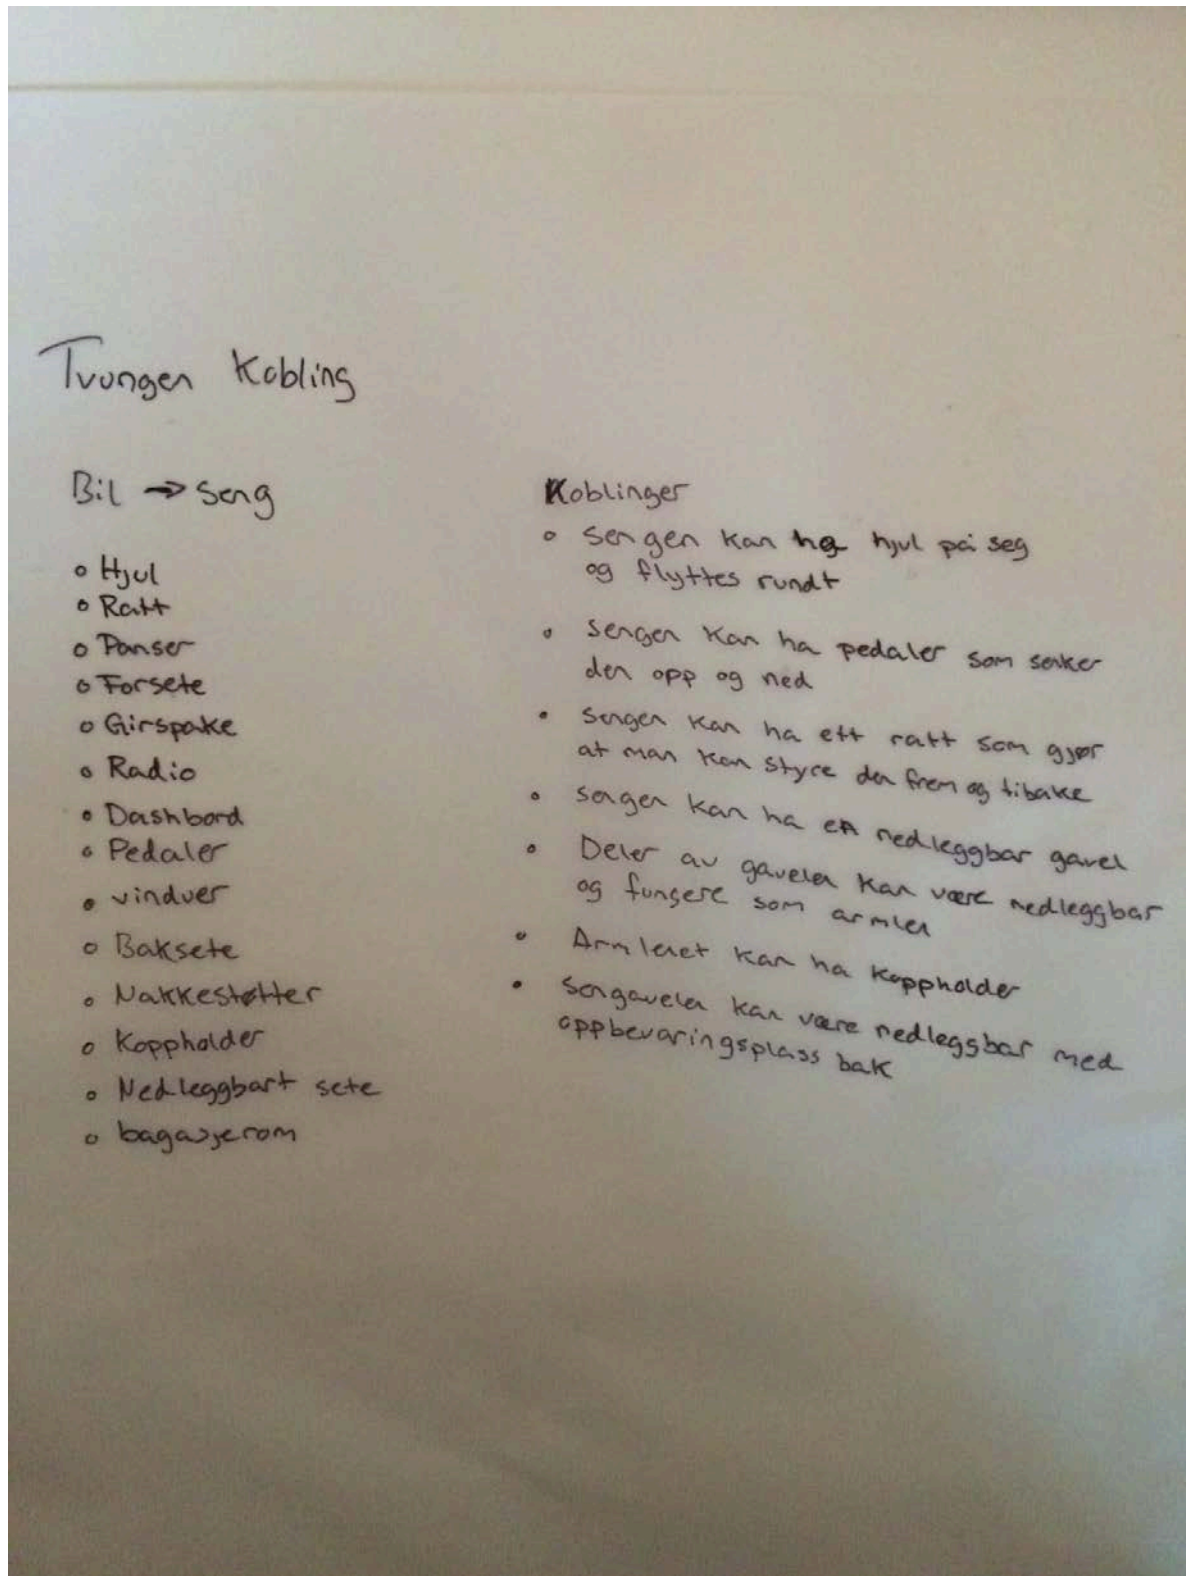 Tvungen Kobling
Bil → Seng
• Hjul
• Ratt
• Panser
• Forsete
• Girspake
• Radio
• Dashbord
• Pedaler
• vinduer
• Baksete
• Nakkestøtter
• Koppholder
• Nedleggbart sete
• bagasjerom
Koblinger
• Sengen kan ha hjul på seg
og flyttes rundt
• Sengen kan ha pedaler som senker
den opp og ned
• Sengen kan ha ett ratt som gjør
at man kan styre den frem og tibake
• sengen kan ha en nedleggbar gavel
• Deler av gavelen kan være nedleggbar
og fungere som armlen
• Armlenet kan ha koppholder
• Sengavelen kan være nedleggbar med
oppbevaringsplass bak